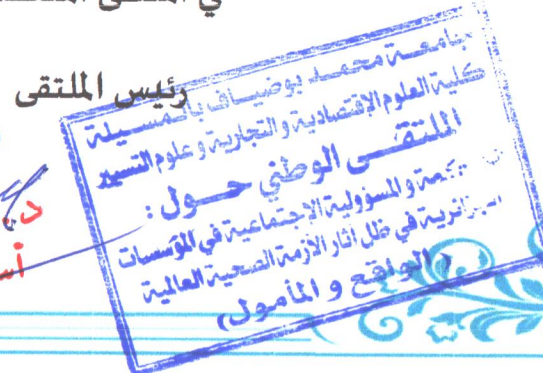 في الملتقى
رئيس الملتقى
جامعة محمد بوضياف بالمسيلة
كلية العلوم الإقتصادية والتجارية وعلوم التسيير
الملتقى الوطني حول :
والمسؤولية الإجتماعية في المؤسسات
الجزائرية في ظل اثار الأزمة الصحية العالمية
(الواقع و المأمول)
د.